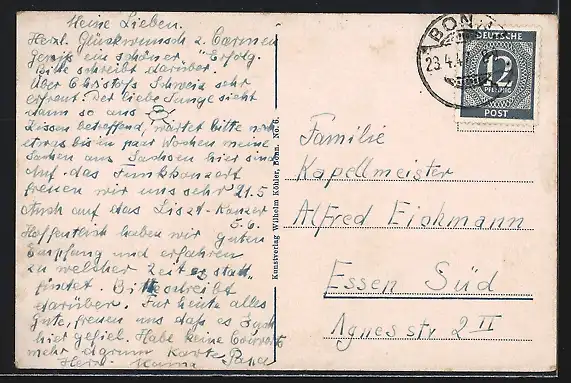 Meine Lieben.
Herzl. Glückwunsch z. Carmen
Gewiß ein schöner Erfolg.
Bitte schreibt darüber.
Über Christofs Schweiz sehr
erfreut. Der liebe Junge sieht
dann so aus
Kissen betreffend, wartet bitte noch
etwas bis ein paar Wochen meine
Sachen aus Sachsen hier sind
Auf das Funkkonzert
freuen wir uns sehr 21.5
Auch auf das Liszt-Konzert
5.6.
Hoffentlich haben wir guten
Empfang und erfahren
zu welcher Zeit es statt
findet. Bitte schreibt
darüber. Für heute alles
Gute, freuen uns daß es Euch
hier gefiel. Habe keine Couverts
mehr darum Karte Papa
Herzl. Mama
Kunstverlag Wilhelm Köhler, Bonn. No. 6.
BONN
23.4.4
DEUTSCHE
12
PFENNIG
POST
Familie
Kapellmeister
Alfred Eichmann
Essen Süd
Agnesstr 2 II